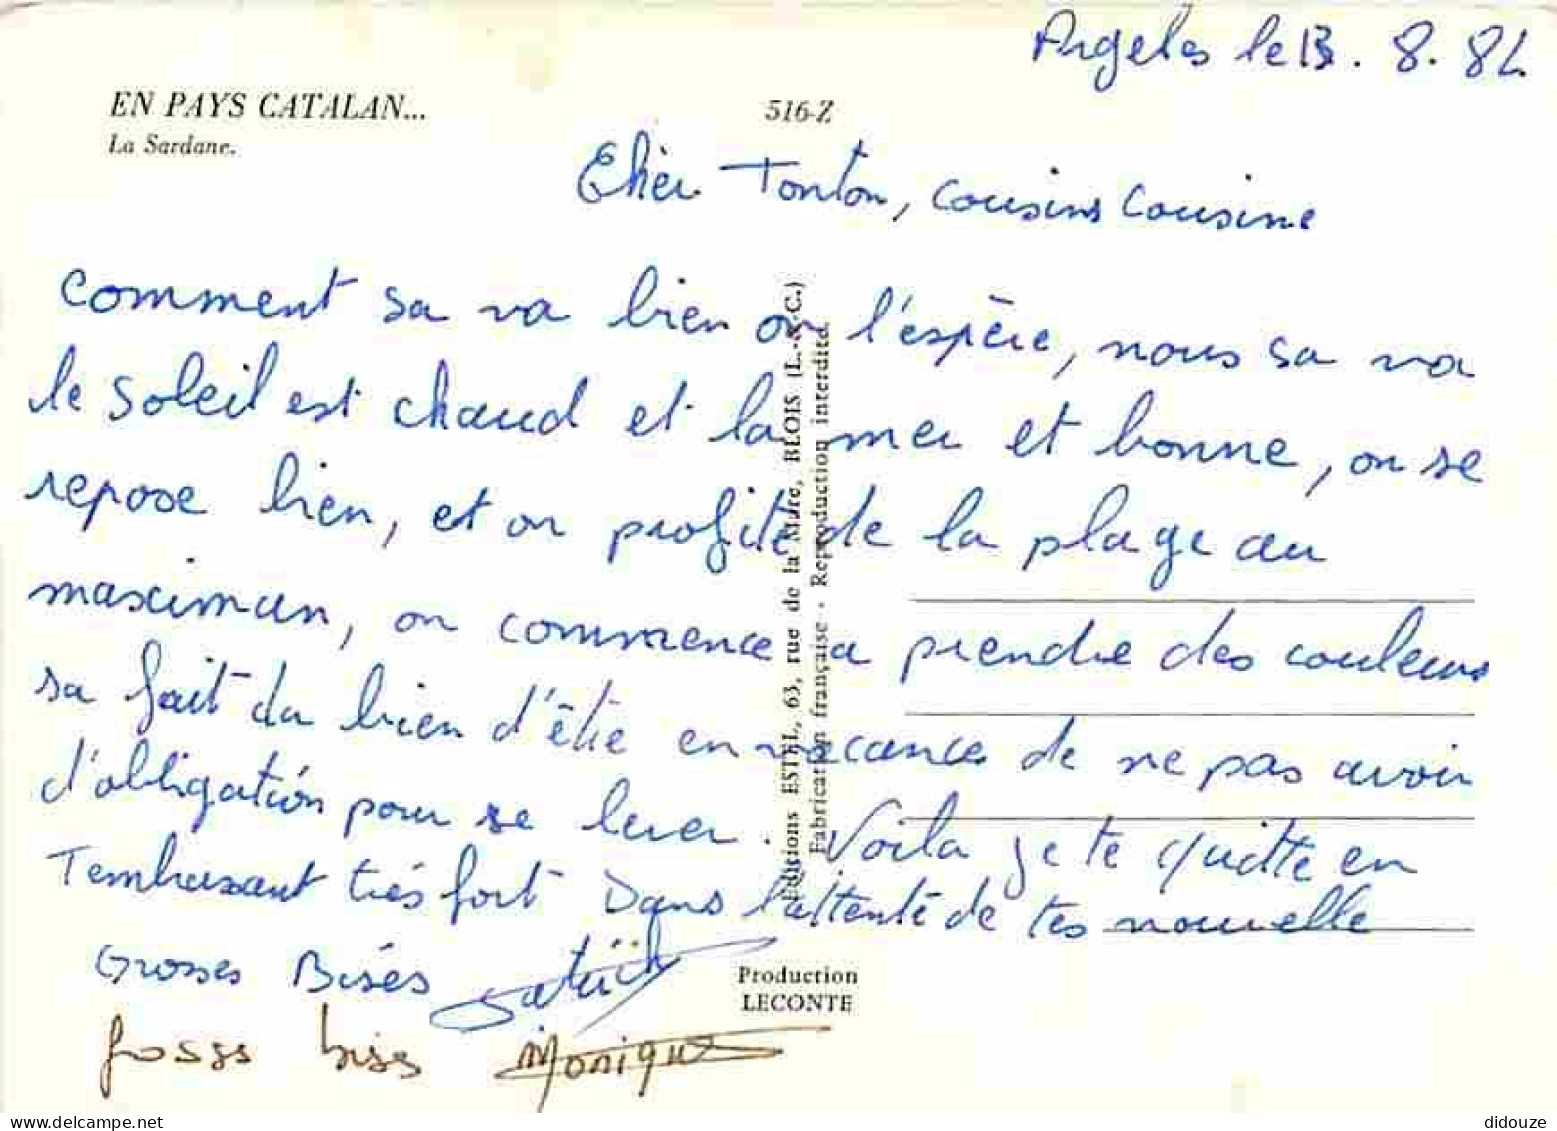 Argeles le 13. 8. 82
EN PAYS CATALAN...
La Sardane.
516-Z
Cher Tonton, cousins cousine
comment sa va bien on l'espère, nous sa va
le soleil est chaud et la mer et bonne, on se
repose bien, et on profite de la plage au
maximun, on commence a prendre des couleurs
sa fait du bien d'être en vacances de ne pas avoir
d'obligation pour se lever. Voila je te quitte en
T'embrassant très fort Dans l'attente de tes nouvelle
Grosses Bises Patrick
Grosses bises Monique
Editions ESTEL, 63, rue de la Mare, BLOIS (L.-&-C.)
Fabrication française - Reproduction interdite
Production
LECONTE
didouze